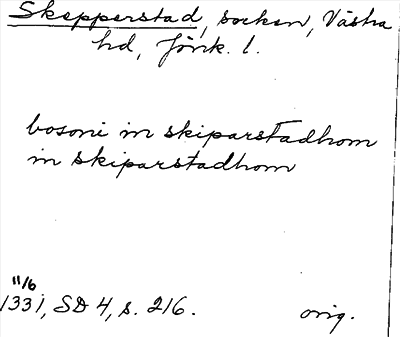 Skepperstad, socken, Västra
hd, Jönk. l.
bosoni in skiparstadhom
in skiparstadhom
11/6
1331, SD 4, s. 216. orig.